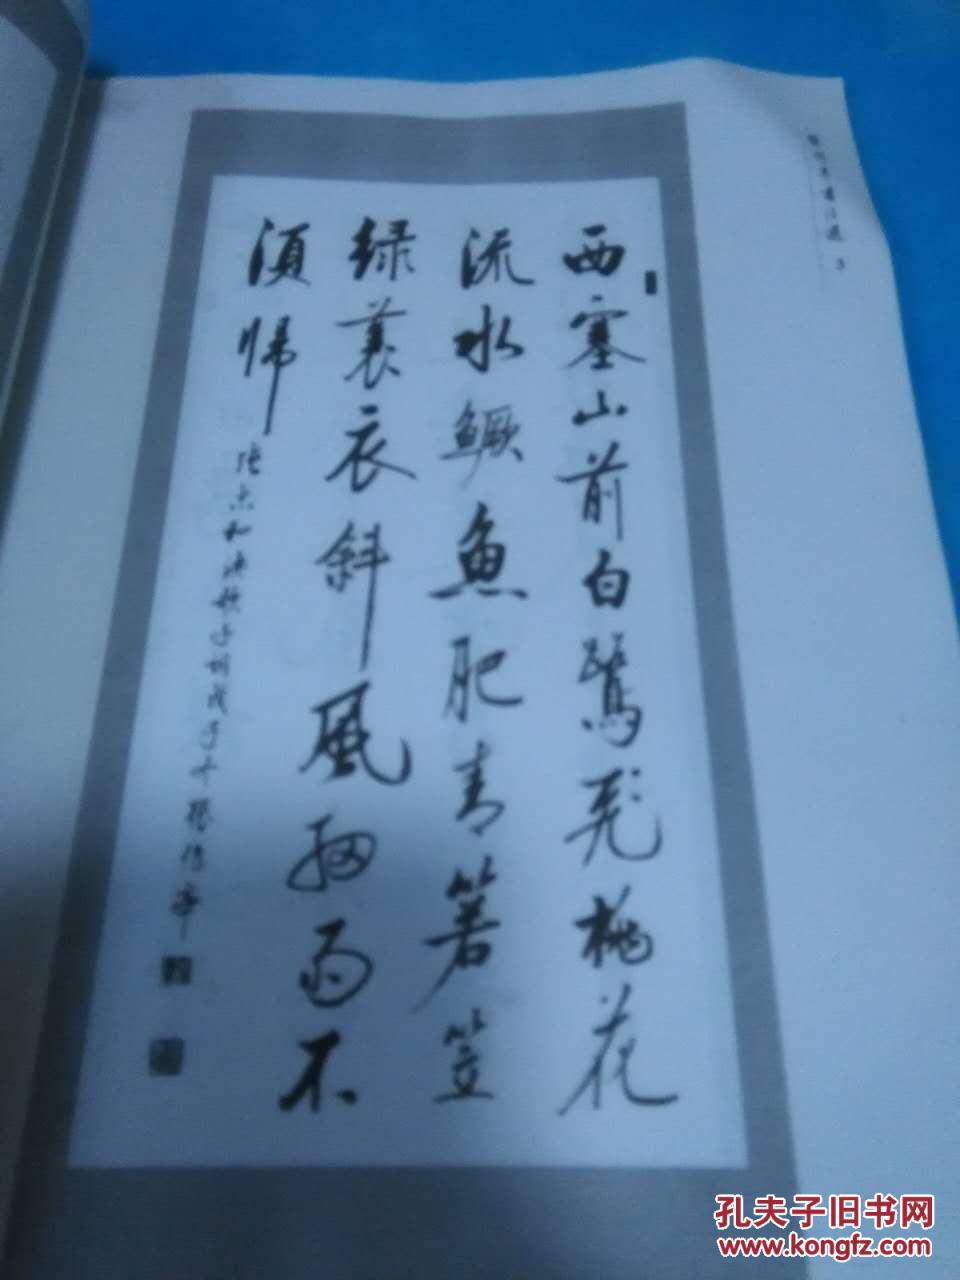 西塞山前白鹭飞桃花
流水鳜鱼肥青箬笠
绿蓑衣斜风细雨不
须归
张志和渔歌子词戊子年
孔夫子旧书网
www.kongfz.com